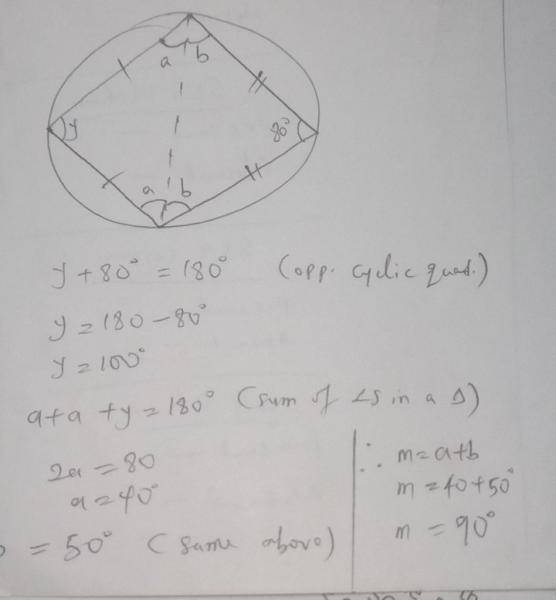 a b
y
80°
a b
y + 80° = 180° (opp. cyclic quad.)
y = 180 - 80°
y = 100°
a + a + y = 180° (sum of ∠s in a Δ)
2a = 80
a = 40°
= 50° (same above)
∴ m = a + b
m = 40 + 50°
m = 90°